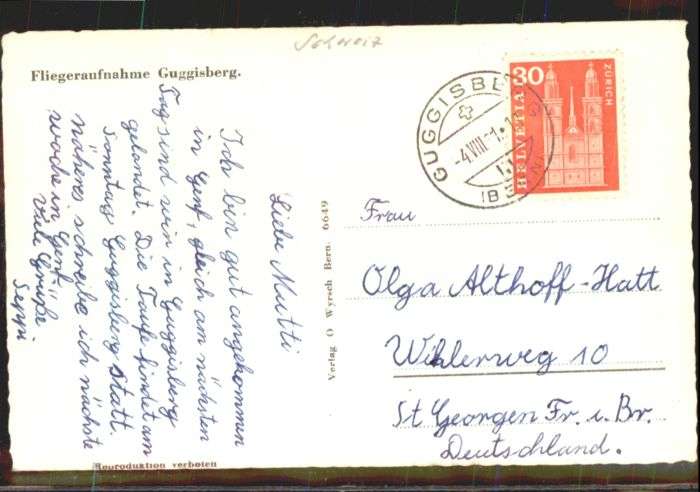 Schweiz
Fliegeraufnahme Guggisberg.
Liebe Mutti
Ich bin gut angekommen
in Genf, gleich am nächsten
Tag sind wir in Guggisberg
gelandet. Die Taufe findet am
Sonntag Guggisberg statt.
näheres schreibe ich nächste
woche in Genf
Viele Grüße
Seppi
Reproduktion verboten
Verlag O Wyrsch Bern. 6649
GUGGISBERG
-4.VIII
(BERN)
30
HELVETIA
ZÜRICH
Frau
Olga Althoff-Hatt
Wihlerweg 10
St Georgen Fr. i. Br.
Deutschland.